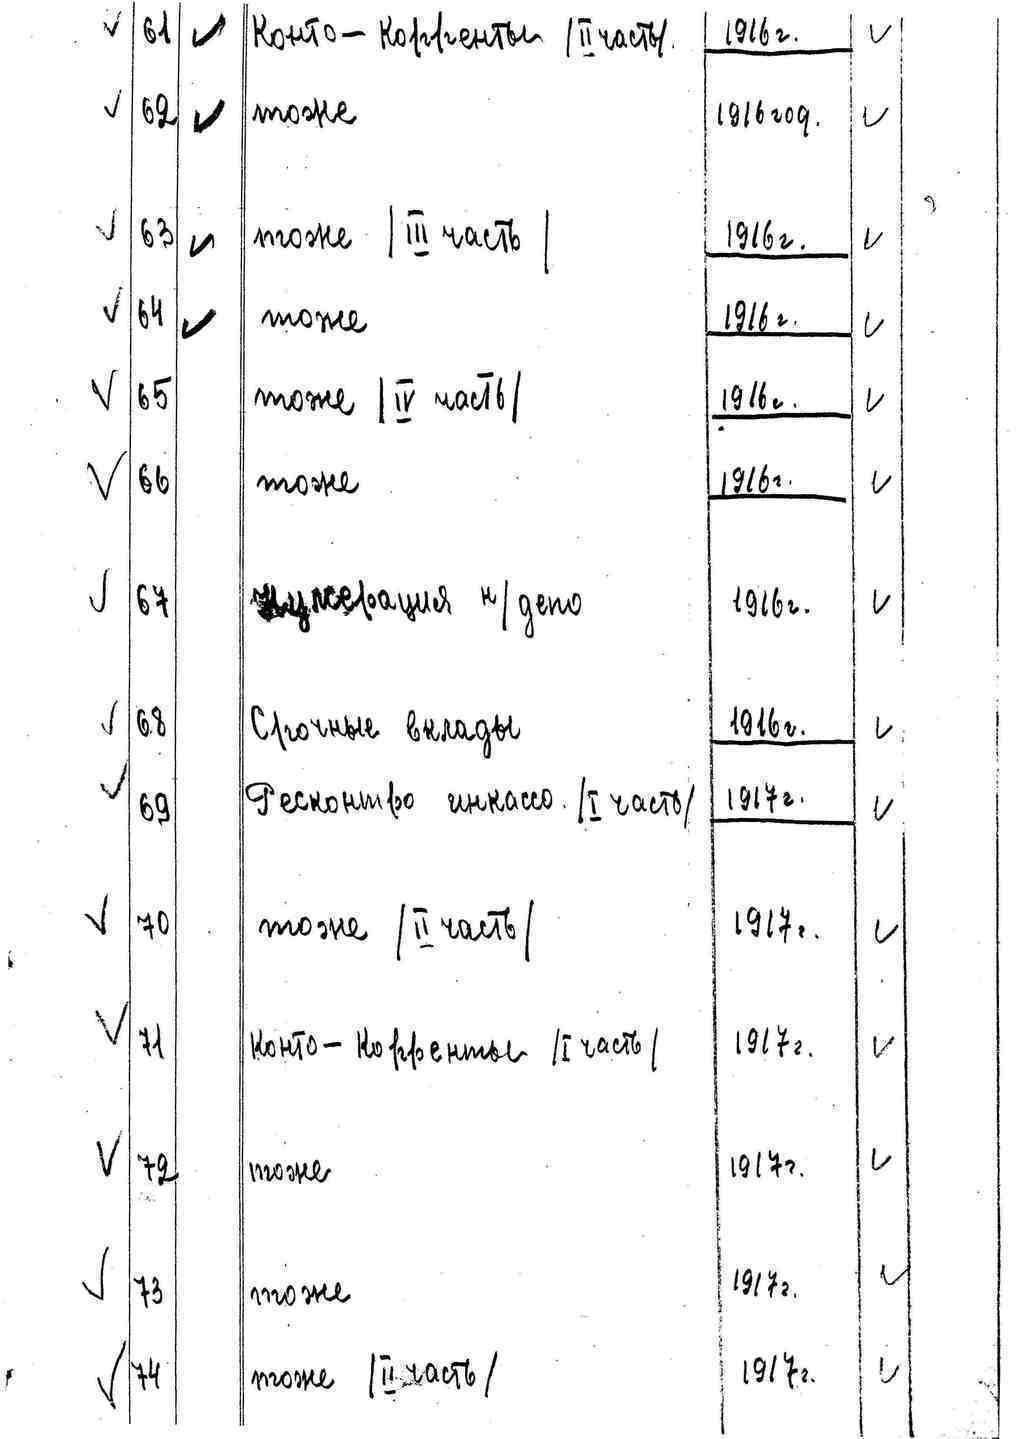 ✓ 61 ✓ Конто – Корренты /II часть/. 1916 г. ✓
✓ 62 ✓ тоже 1916 год. ✓
✓ 63 ✓ тоже /III часть/ 1916 г. ✓
✓ 64 ✓ тоже 1916 г. ✓
✓ 65 тоже /IV часть/ 1916 г. ✓
✓ 66 тоже 1916 г. ✓
✓ 67 Нумерация н/депо 1916 г. ✓
✓ 68 Срочные вклады 1916 г. ✓
✓ 69 Ресконтро инкассо. /I часть/ 1917 г. ✓
✓ 70 тоже /II часть/ 1917 г. ✓
✓ 71 Конто – Корренты /I часть/ 1917 г. ✓
✓ 72 тоже 1917 г. ✓
✓ 73 тоже 1917 г. ✓
✓ 74 тоже /II часть/ 1917 г. ✓